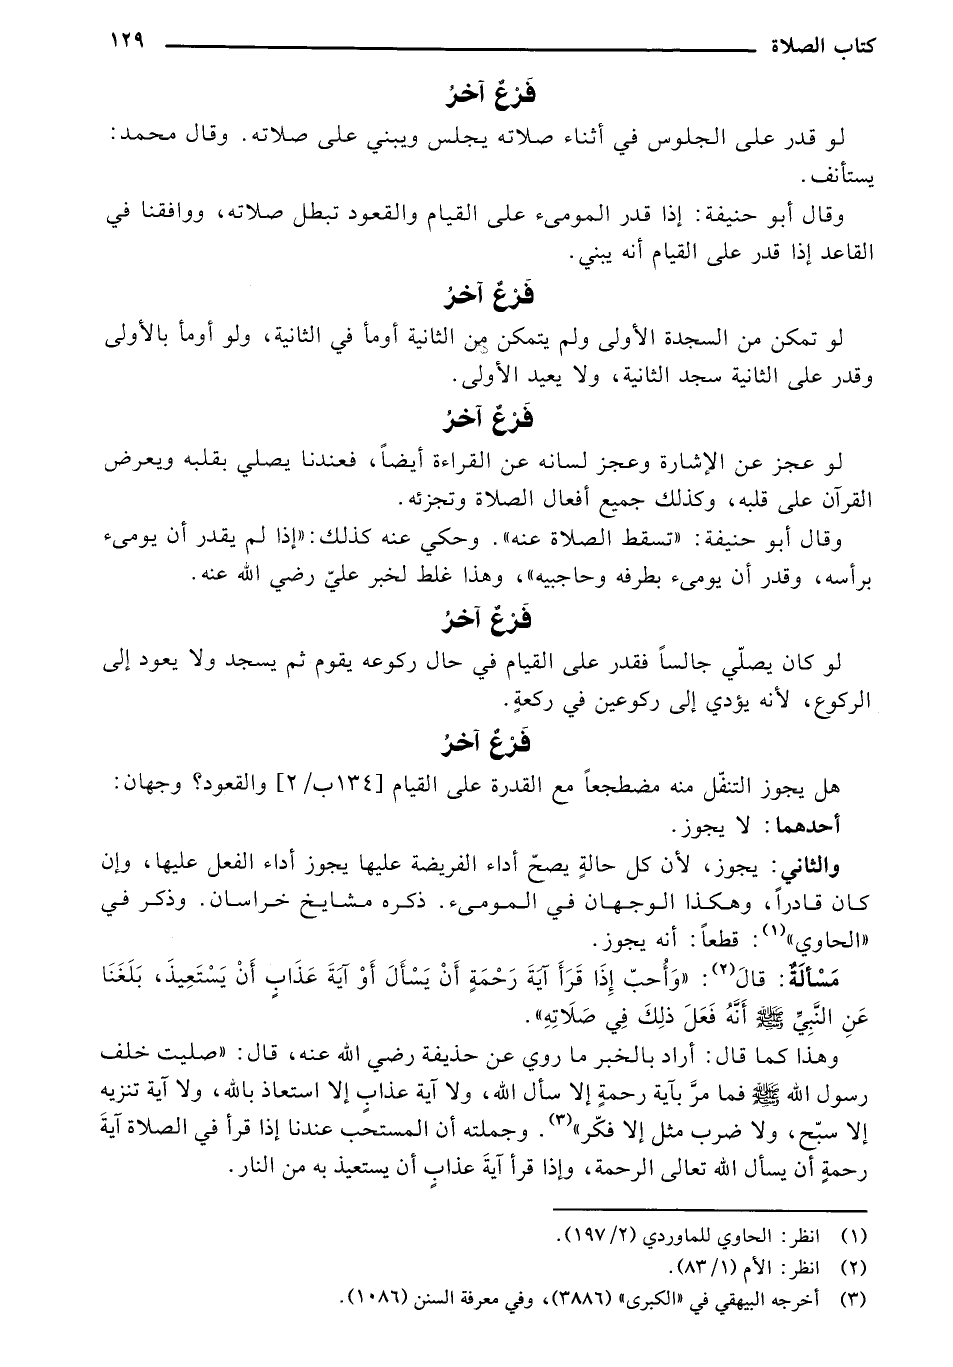 كتاب الصلاة ١٢٩
فَرْعٌ آخرُ
لو قدر على الجلوس في أثناء صلاته يجلس ويبني على صلاته. وقال محمد:
يستأنف.
وقال أبو حنيفة: إذا قدر المومىء على القيام والقعود تبطل صلاته، ووافقنا في
القاعد إذا قدر على القيام أنه يبني.
فَرْعٌ آخرُ
لو تمكن من السجدة الأولى ولم يتمكن مِن الثانية أومأ في الثانية، ولو أومأ بالأولى
وقدر على الثانية سجد الثانية، ولا يعيد الأولى.
فَرْعٌ آخرُ
لو عجز عن الإشارة وعجز لسانه عن القراءة أيضاً، فعندنا يصلي بقلبه ويعرض
القرآن على قلبه، وكذلك جميع أفعال الصلاة وتجزئه.
وقال أبو حنيفة: «تسقط الصلاة عنه». وحكي عنه كذلك: «إذا لم يقدر أن يومىء
برأسه، وقدر أن يومىء بطرفه وحاجبيه»، وهذا غلط لخبر عليّ رضي الله عنه.
فَرْعٌ آخرُ
لو كان يصلّي جالساً فقدر على القيام في حال ركوعه يقوم ثم يسجد ولا يعود إلى
الركوع، لأنه يؤدي إلى ركوعين في ركعةٍ.
فَرْعٌ آخرُ
هل يجوز التنفّل منه مضطجعاً مع القدرة على القيام [١٣٤ب/ ٢] والقعود؟ وجهان:
أحدهما: لا يجوز.
والثاني: يجوز، لأن كل حالةٍ يصحّ أداء الفريضة عليها يجوز أداء الفعل عليها، وإن
كان قادراً، وهكذا الوجهان في المومىء. ذكره مشايخ خراسان. وذكر في
«الحاوي»(١): قطعاً: أنه يجوز.
مَسْألَةٌ: قالَ(٢): «وَأُحبّ إِذَا قَرَأَ آيَةَ رَحْمَةٍ أَنْ يَسْأَلَ أَوْ آيَةَ عَذَابٍ أَنْ يَسْتَعِيذَ، بَلَغَنَا
عَنِ النَّبِيِّ ﷺ أَنَّهُ فَعَلَ ذلِكَ فِي صَلَاتِهِ».
وهذا كما قال: أراد بالخبر ما روي عن حذيفة رضي الله عنه، قال: «صليت خلف
رسول الله ﷺ فما مرَّ بآية رحمةٍ إلا سأل الله، ولا آية عذابٍ إلا استعاذ بالله، ولا آية تنزيه
إلا سبّح، ولا ضرب مثل إلا فكّر»(٣). وجملته أن المستحب عندنا إذا قرأ في الصلاة آيةَ
رحمةٍ أن يسأل الله تعالى الرحمة، وإذا قرأ آيةَ عذابٍ أن يستعيذ به من النار.
(١) انظر: الحاوي للماوردي (٢/ ١٩٧).
(٢) انظر: الأم (١/ ٨٣).
(٣) أخرجه البيهقي في «الكبرى» (٣٨٨٦)، وفي معرفة السنن (١٠٨٦).